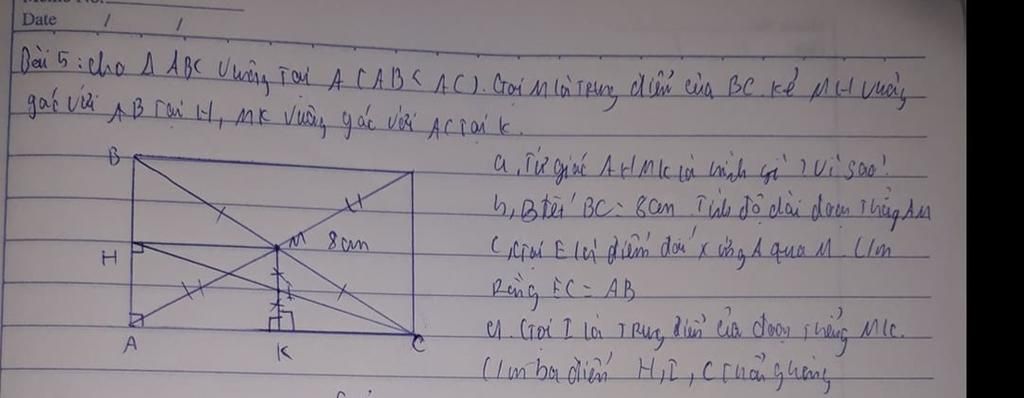 Date / /
Bài 5: cho Δ ABC Vuông Tại A (AB < AC). Gọi M là Trung điểm của BC. Kẻ MH vuông
góc với AB Tại H, MK vuông góc với AC Tại K.
a, Tứ giác AHMK là hình gì? Vì sao?
b, Biết BC = 8cm Tính độ dài đoạn Thẳng AM
C, Gọi E là điểm đối xứng A qua M. C/m
Rằng EC = AB
d. Gọi I là Trung điểm của đoạn Thẳng MK.
C/m ba điểm H, I, C Thẳng hàng
B
M 8cm
H
I
A
K
C